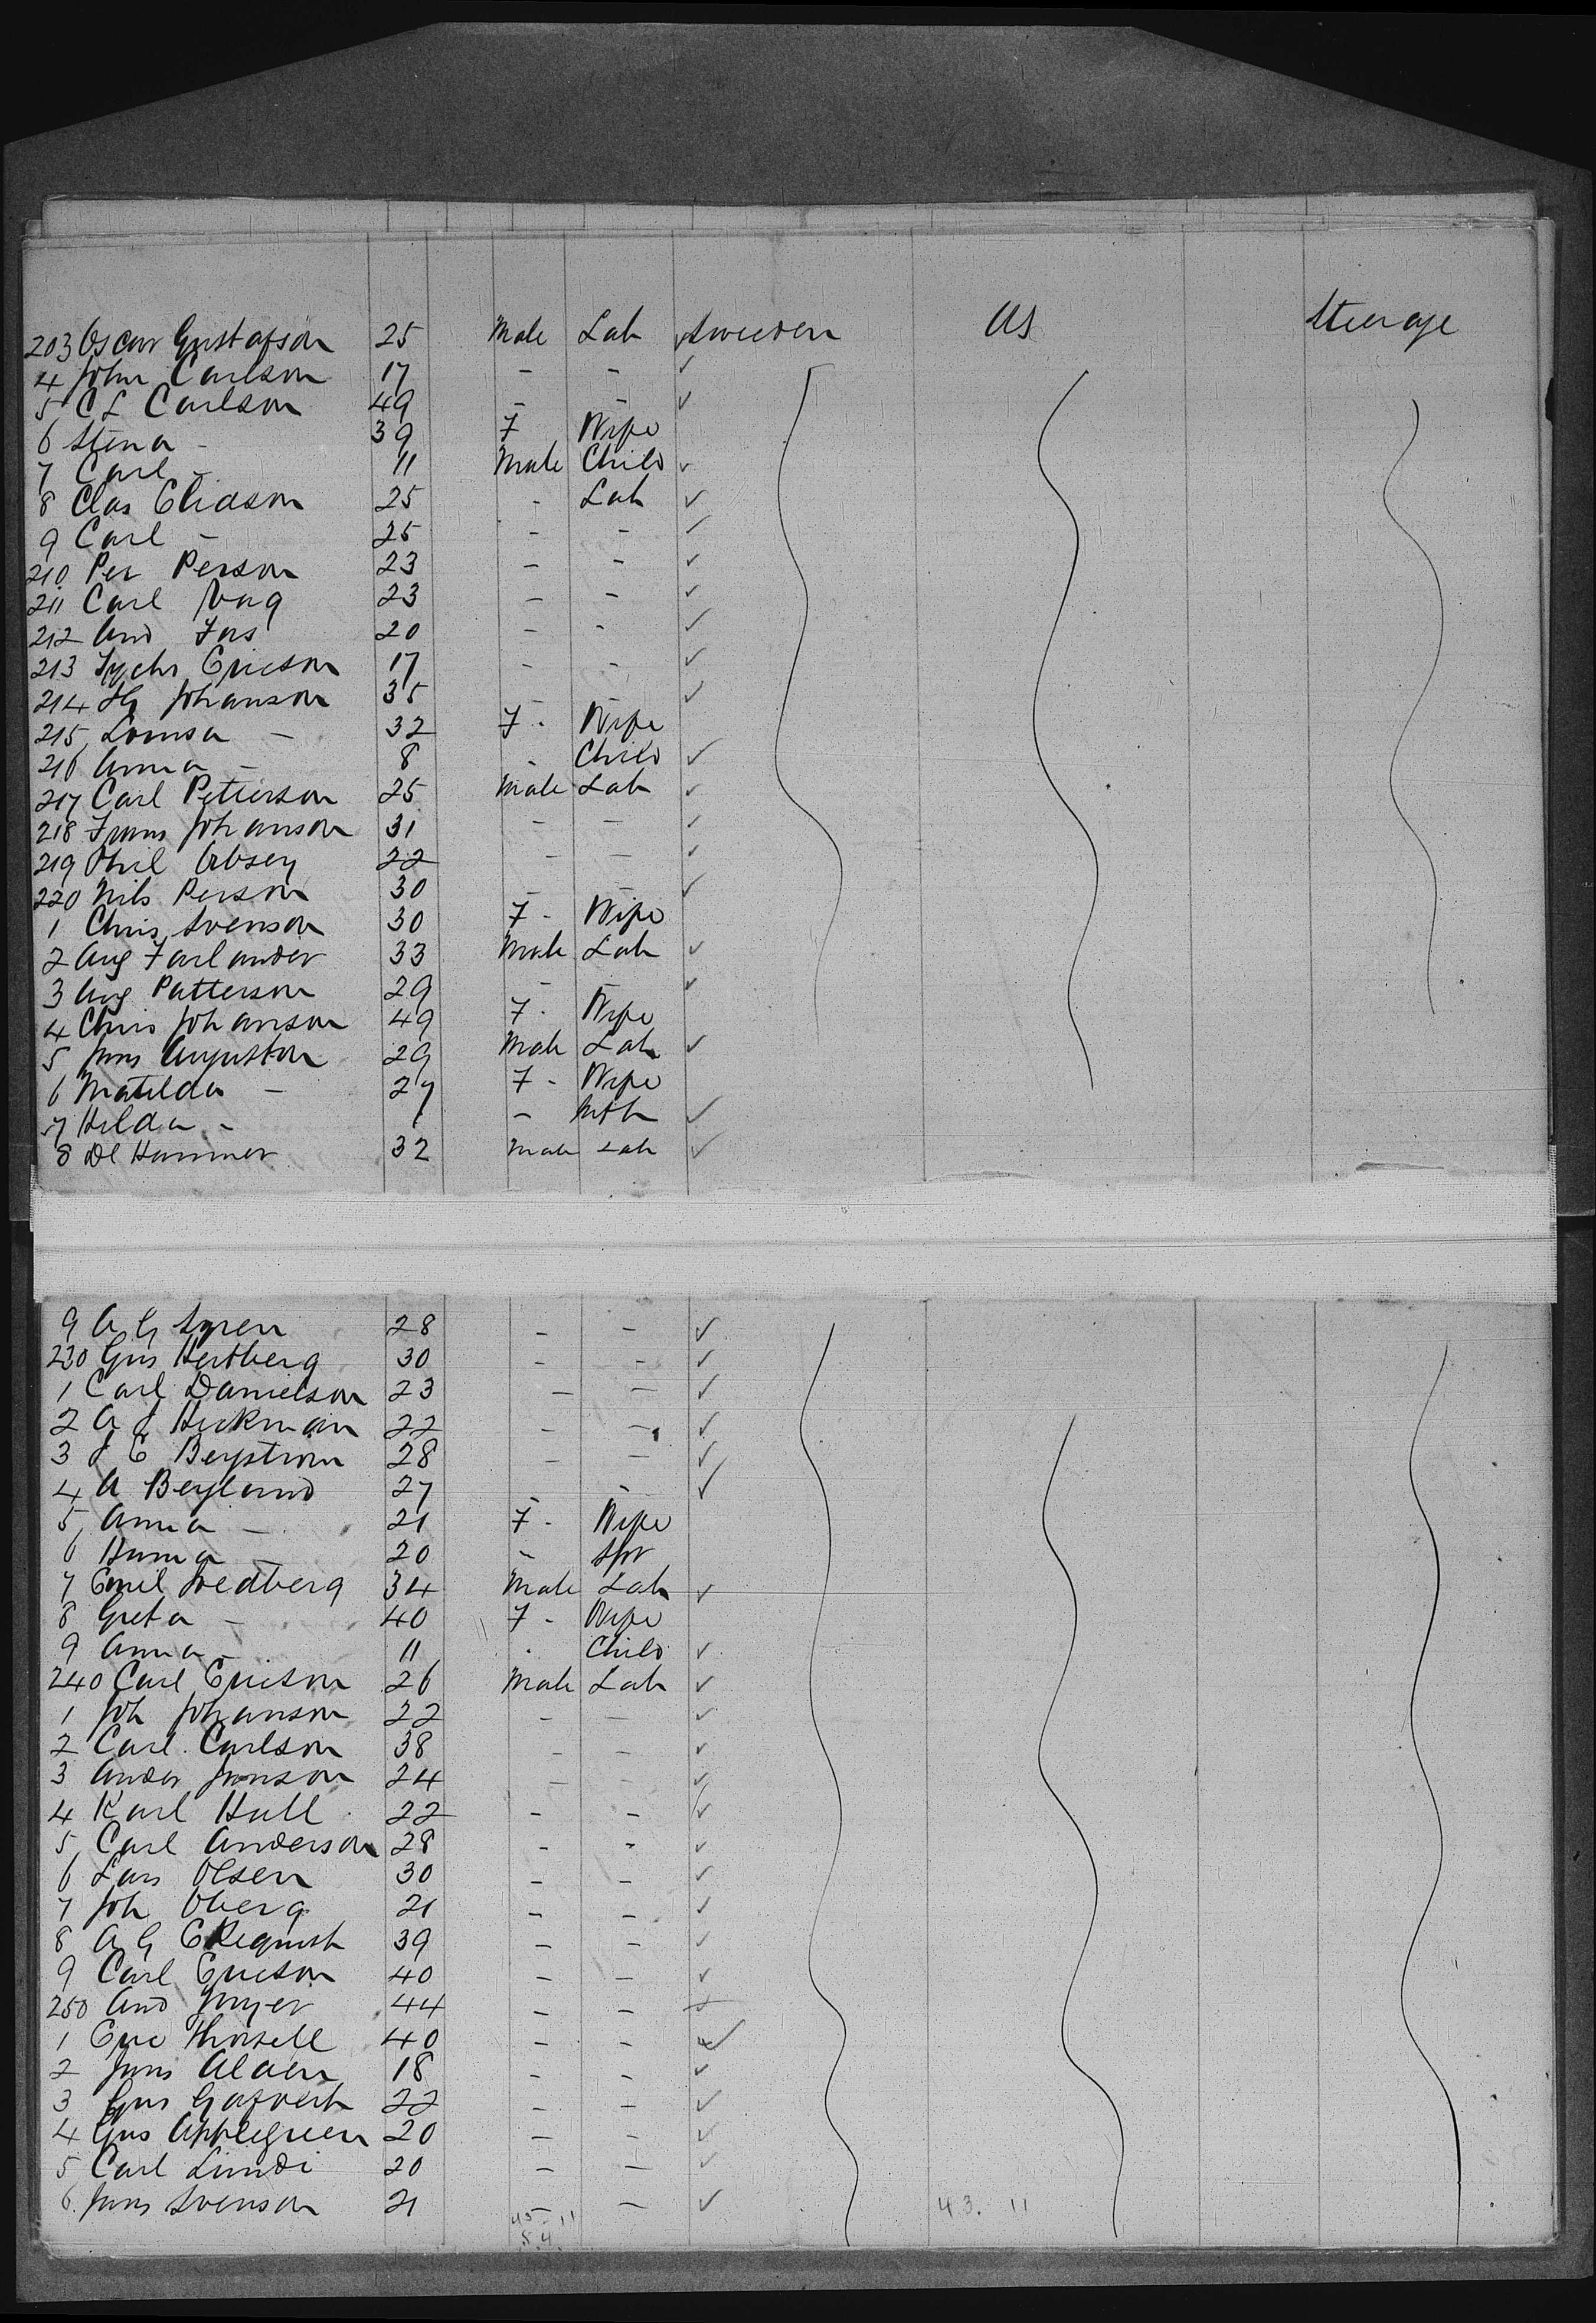 203 Oscar Gustafson 25 Male Lab Sweden US Steerage
4 John Carlson 17 - -
5 C L Carlson 49 - -
6 Stena - 39 F Wife
7 Carl - 11 Male Child
8 Clas Eliason 25 - Lab
9 Carl - 25 - -
210 Per Person 23 - -
211 Carl Vag 23 - -
212 And Fas 20 - -
213 Ericson 17 - -
214 Johanson 35 - -
215 Lovisa - 32 F - Wife
216 Anna - 8 - Child
217 Carl Petterson 25 Male Lab
218 Frans Johanson 31 - -
219 22 - -
220 Nils Person 30 - -
1 Chris Svenson 30 F - Wife
2 Aug Farlander 33 Male Lab
3 Aug Patterson 29 - -
4 Chris Johanson 49 F - Wife
5 Jons Auguston 29 Male Lab
6 Matilda - 27 F - Wife
7 Hilda - 1 - Inft
8 Hammer 32 Male Lab
9 A G Syren 28 - -
230 Gus Hertberg 30 - -
1 Carl Danielson 23 - -
2 A J Hickman 22 - -
3 J E Bergstrom 28 - -
4 A Berglund 27 - -
5 Anna - 21 F - Wife
6 - 20 - Spr
7 Emil Svedberg 34 Male Lab
8 Greta - 40 F - Wife
9 Anna - 11 - Child
240 Carl Ericson 26 Male Lab
1 Joh Johanson 22 - -
2 Carl Carlson 38 - -
3 Ander Jonson 24 - -
4 Karl Hall 22 - -
5 Carl Anderson 28 - -
6 Lars Olsen 30 - -
7 Joh Oberg 21 - -
8 A G Ekequist 39 - -
9 Carl Ericson 40 - -
250 And 44 - -
1 Eric Thorsell 40 - -
2 Jons 18 - -
3 Gus 22 - -
4 Gus Applegreen 20 - -
5 Carl Lundi 20 - -
6 Jons Svenson 21 - -
45 - 11 43. 11
5.4.